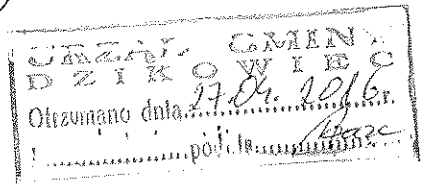 URZĄD GMINY
DZIKOWIEC
Otrzymano dnia 27.04.2016r.
podpis